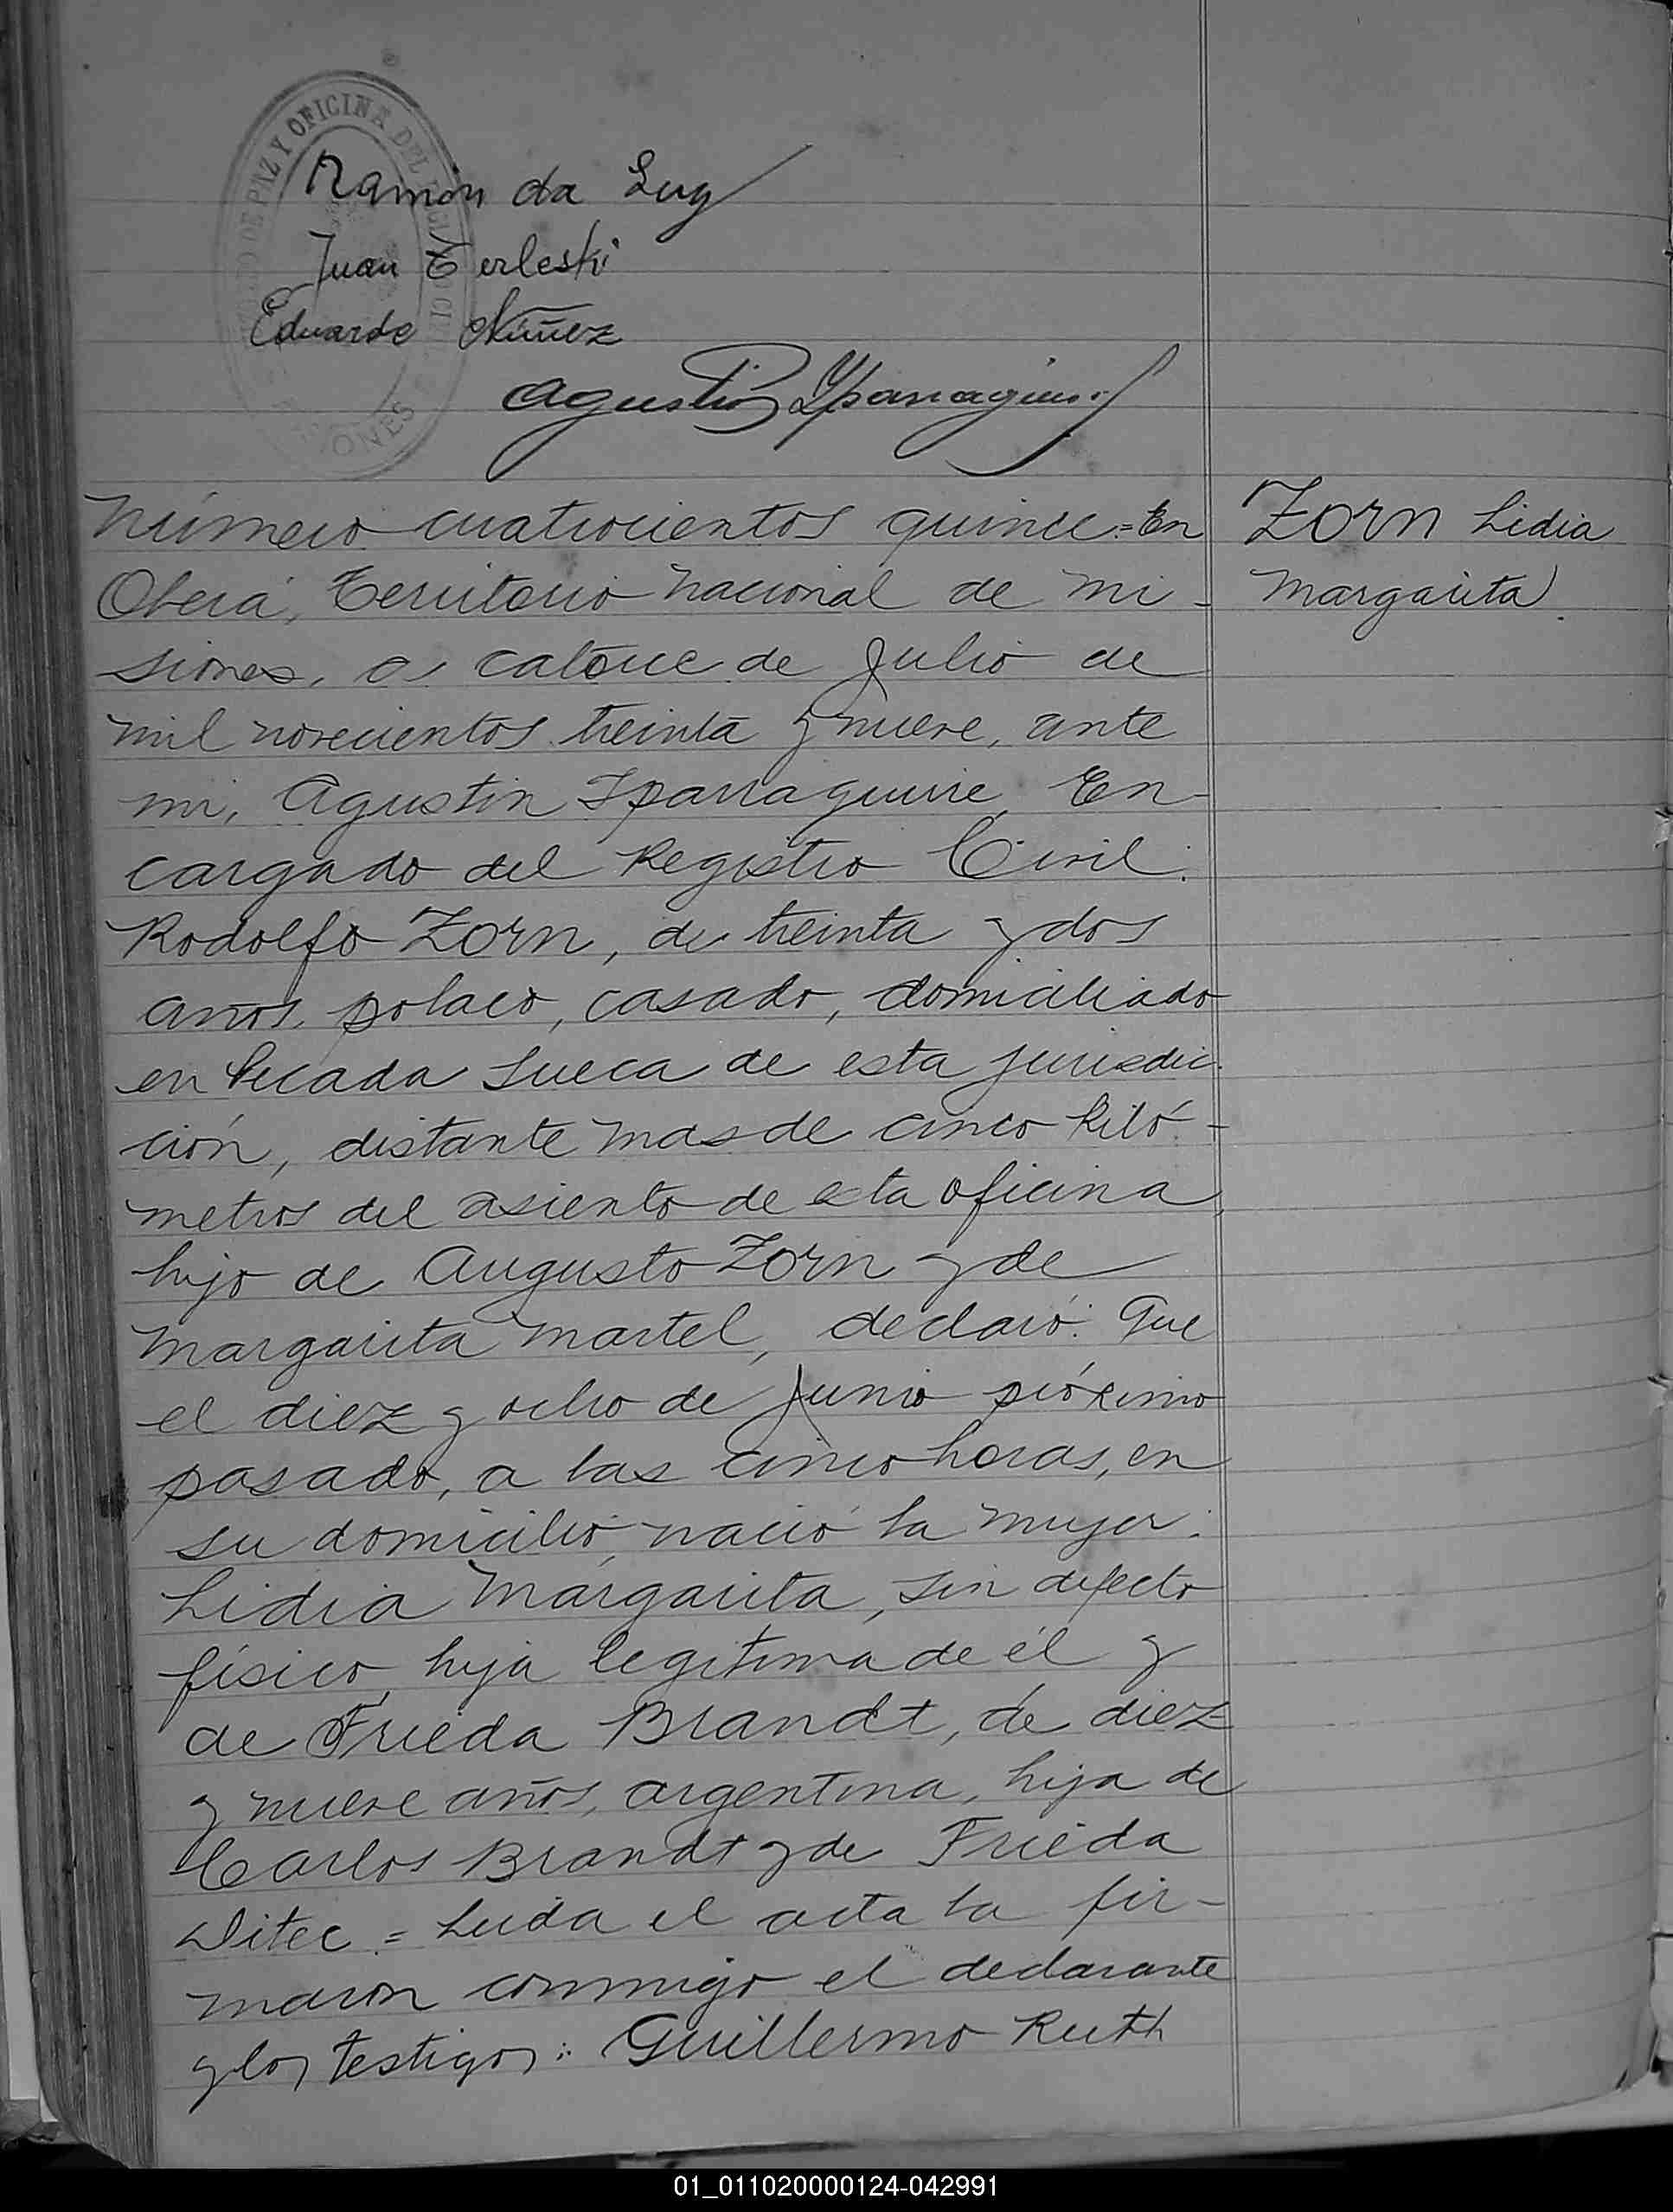 JUZGADO DE PAZ Y OFICINA DEL REGISTRO CIVIL
MISIONES
Ramón da Luz
Juan Terleski
Eduardo Núñez
Agustin Yparraguirre
Número cuatrocientos quince = En
Oberá, Territorio Nacional de Mi-
siones, a catorce de Julio de
mil novecientos treinta y nueve, ante
mi, Agustin Iparraguirre, En-
cargado del Registro Civil:
Rodolfo Zorn, de treinta y dos
años, polaco, casado, domiciliado
en Picada Sueca de esta jurisdic-
ción, distante mas de cinco kiló-
metros del asiento de esta oficina,
hijo de Augusto Zorn y de
Margarita Martel, declaró: Que
el diez y ocho de Junio próximo
pasado, a las cinco horas, en
su domicilio, nació la mujer:
Lidia Margarita, sin defecto
físico, hija legitima de él y
de Frieda Brandt, de diez
y nueve años, argentina, hija de
Carlos Brandt y de Frieda
Ditec. = Leida el acta la fir-
maron conmigo el declarante
y los testigos: Guillermo Ruth
Zorn Lidia
Margarita.
01_011020000124-042991